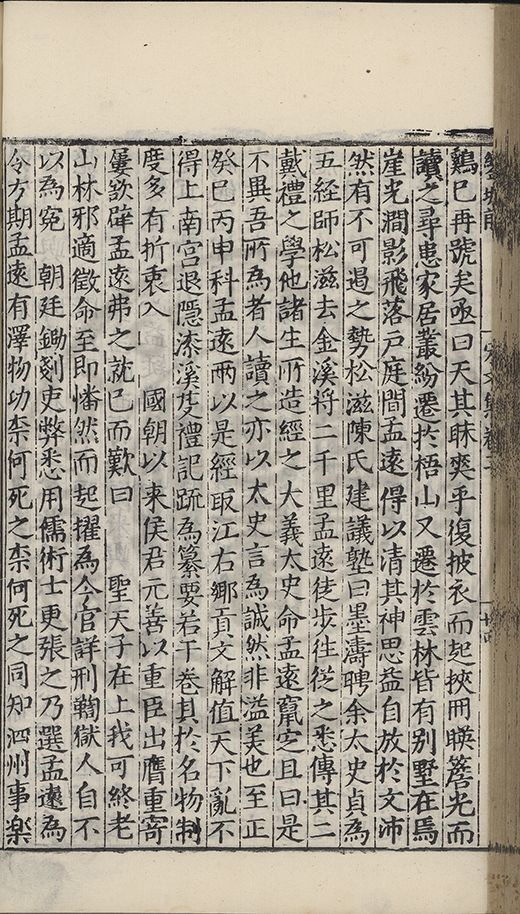 鷄已再號矣亟曰天其昧爽乎復披衣而起挾冊暎簷光而
讀之尋患家居叢紛遷扵梧山又遷於雲林皆有别墅在焉
崖光澗影飛落户庭間孟遠得以清其神思益自放於文沛
然有不可遏之勢松滋陳氏建議塾曰墨濤聘余太史貞爲
五經師松滋去金溪將二千里孟遠徒步徃従之悉傳其二
戴禮之學他諸生所造經之大義太史命孟遠竄㝎且曰是
不異吾所為者人讀之亦以太史言為誠然非溢美也至正
癸巳丙申科孟遠兩以是經取江右鄉貢文解值天下亂不
得上南宫退隱漆溪叏禮記䟽為纂要若干卷其於名物制
度多有折衷入 國朝以来侯君元善以重臣出膺重寄
屢欲薜孟遠弗之就已而歎曰 聖天子在上我可終老
山林邪適徵命至即幡然而起擢為今官詳刑鞫獄人自不
以為寃 朝廷鋤剗吏弊悉用儒術士更張之乃選孟遠為
令方期孟遠有澤物功柰何死之柰何死之同知泗州事楽